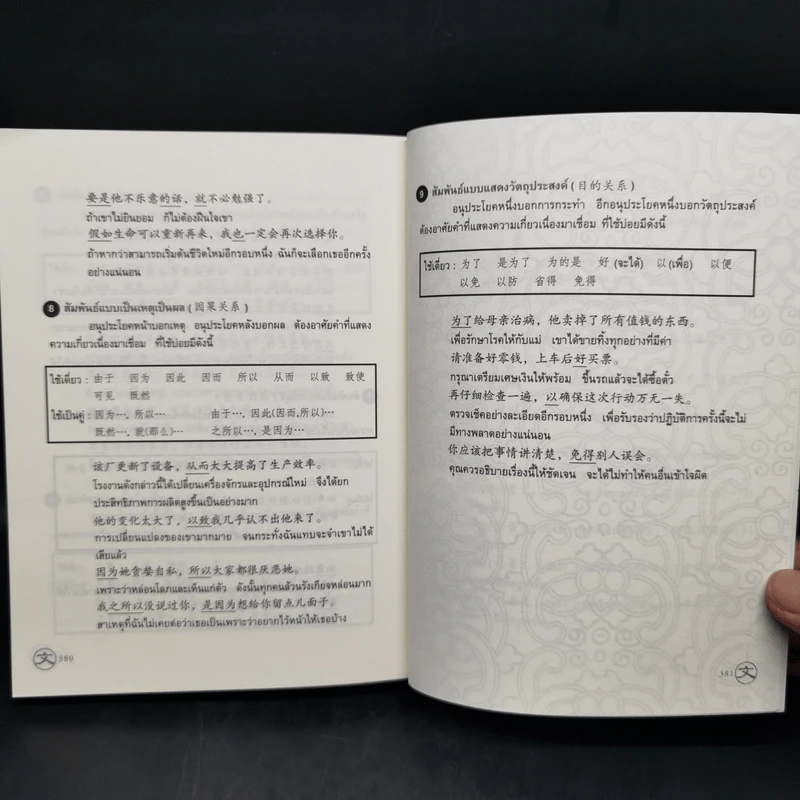 要是他不乐意的话，就不必勉强了。
ถ้าเขาไม่ยินยอม ก็ไม่ต้องฝืนใจเขา
假如生命可以重新再来，我也一定会再次选择你。
ถ้าหากว่าสามารถเริ่มต้นชีวิตใหม่อีกรอบหนึ่ง ฉันก็จะเลือกเธออีกครั้ง
อย่างแน่นอน
8 สัมพันธ์แบบเป็นเหตุเป็นผล (因果关系)
อนุประโยคหน้าบอกเหตุ อนุประโยคหลังบอกผล ต้องอาศัยคำที่แสดง
ความเกี่ยวเนื่องมาเชื่อม ที่ใช้บ่อยมีดังนี้
ใช้เดี่ยว : 由于 因为 因此 因而 所以 从而 以致 致使
可见 既然
ใช้เป็นคู่ : 因为…, 所以… 由于…, 因此(因而,所以)…
既然…, 就(那么)… 之所以…, 是因为…
该厂更新了设备，从而大大提高了生产效率。
โรงงานดังกล่าวนี้ได้เปลี่ยนเครื่องจักรและอุปกรณ์ใหม่ จึงได้ยก
ประสิทธิภาพการผลิตสูงขึ้นเป็นอย่างมาก
他的变化太大了，以致我几乎认不出他来了。
การเปลี่ยนแปลงของเขามากมาย จนกระทั่งฉันแทบจะจำเขาไม่ได้
เสียแล้ว
因为她贪婪自私，所以大家都很厌恶她。
เพราะว่าหล่อนโลภและเห็นแก่ตัว ดังนั้นทุกคนล้วนรังเกียจหล่อนมาก
我之所以没说过你，是因为想给你留点儿面子。
สาเหตุที่ฉันไม่เคยต่อว่าเธอเป็นเพราะว่าอยากไว้หน้าให้เธอบ้าง
文 380
9 สัมพันธ์แบบแสดงวัตถุประสงค์ (目的关系)
อนุประโยคหนึ่งบอกการกระทำ อีกอนุประโยคหนึ่งบอกวัตถุประสงค์
ต้องอาศัยคำที่แสดงความเกี่ยวเนื่องมาเชื่อม ที่ใช้บ่อยมีดังนี้
ใช้เดี่ยว : 为了 是为了 为的是 好 (จะได้) 以 (เพื่อ) 以便
以免 以防 省得 免得
为了给母亲治病，他卖掉了所有值钱的东西。
เพื่อรักษาโรคให้กับแม่ เขาได้ขายทิ้งทุกอย่างที่มีค่า
请准备好零钱，上车后好买票。
กรุณาตระเตรียมเศษเงินให้พร้อม ขึ้นรถแล้วจะได้ซื้อตั๋ว
再仔细检查一遍，以确保这次行动万无一失。
ตรวจเช็คอย่างละเอียดอีกรอบหนึ่ง เพื่อรับรองว่าปฏิบัติการครั้งนี้จะไม่
มีทางพลาดอย่างแน่นอน
你应该把事情讲清楚，免得别人误会。
คุณควรอธิบายเรื่องนี้ให้ชัดเจน จะได้ไม่ทำให้คนอื่นเข้าใจผิด
381 文